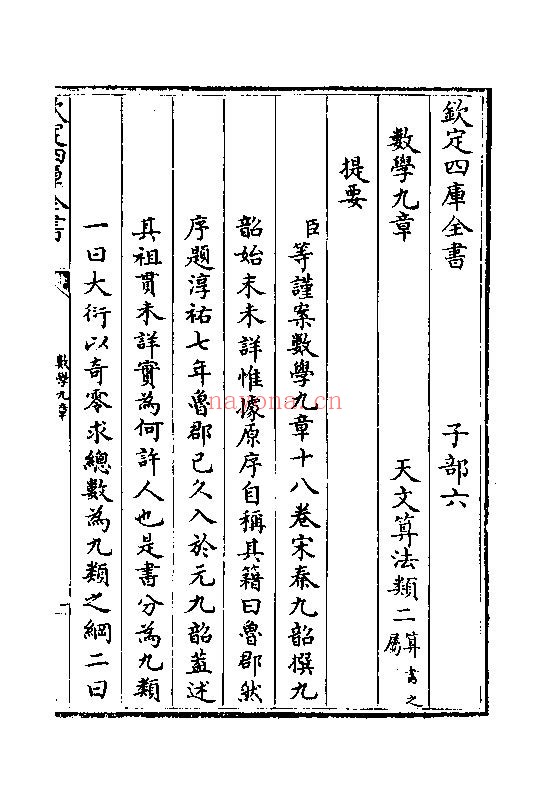 欽定四庫全書 子部六
數學九章 天文算法類二算書之屬
提要
臣等謹案數學九章十八卷宋秦九韶撰九
韶始末未詳惟據原序自稱其籍曰魯郡然
序題淳祐七年魯郡已久入於元九韶蓋述
其祖貫未詳實為何許人也是書分為九類
一曰大衍以奇零求總數為九類之綱二曰
欽定四庫全書
數學九章
一
nayona.cn